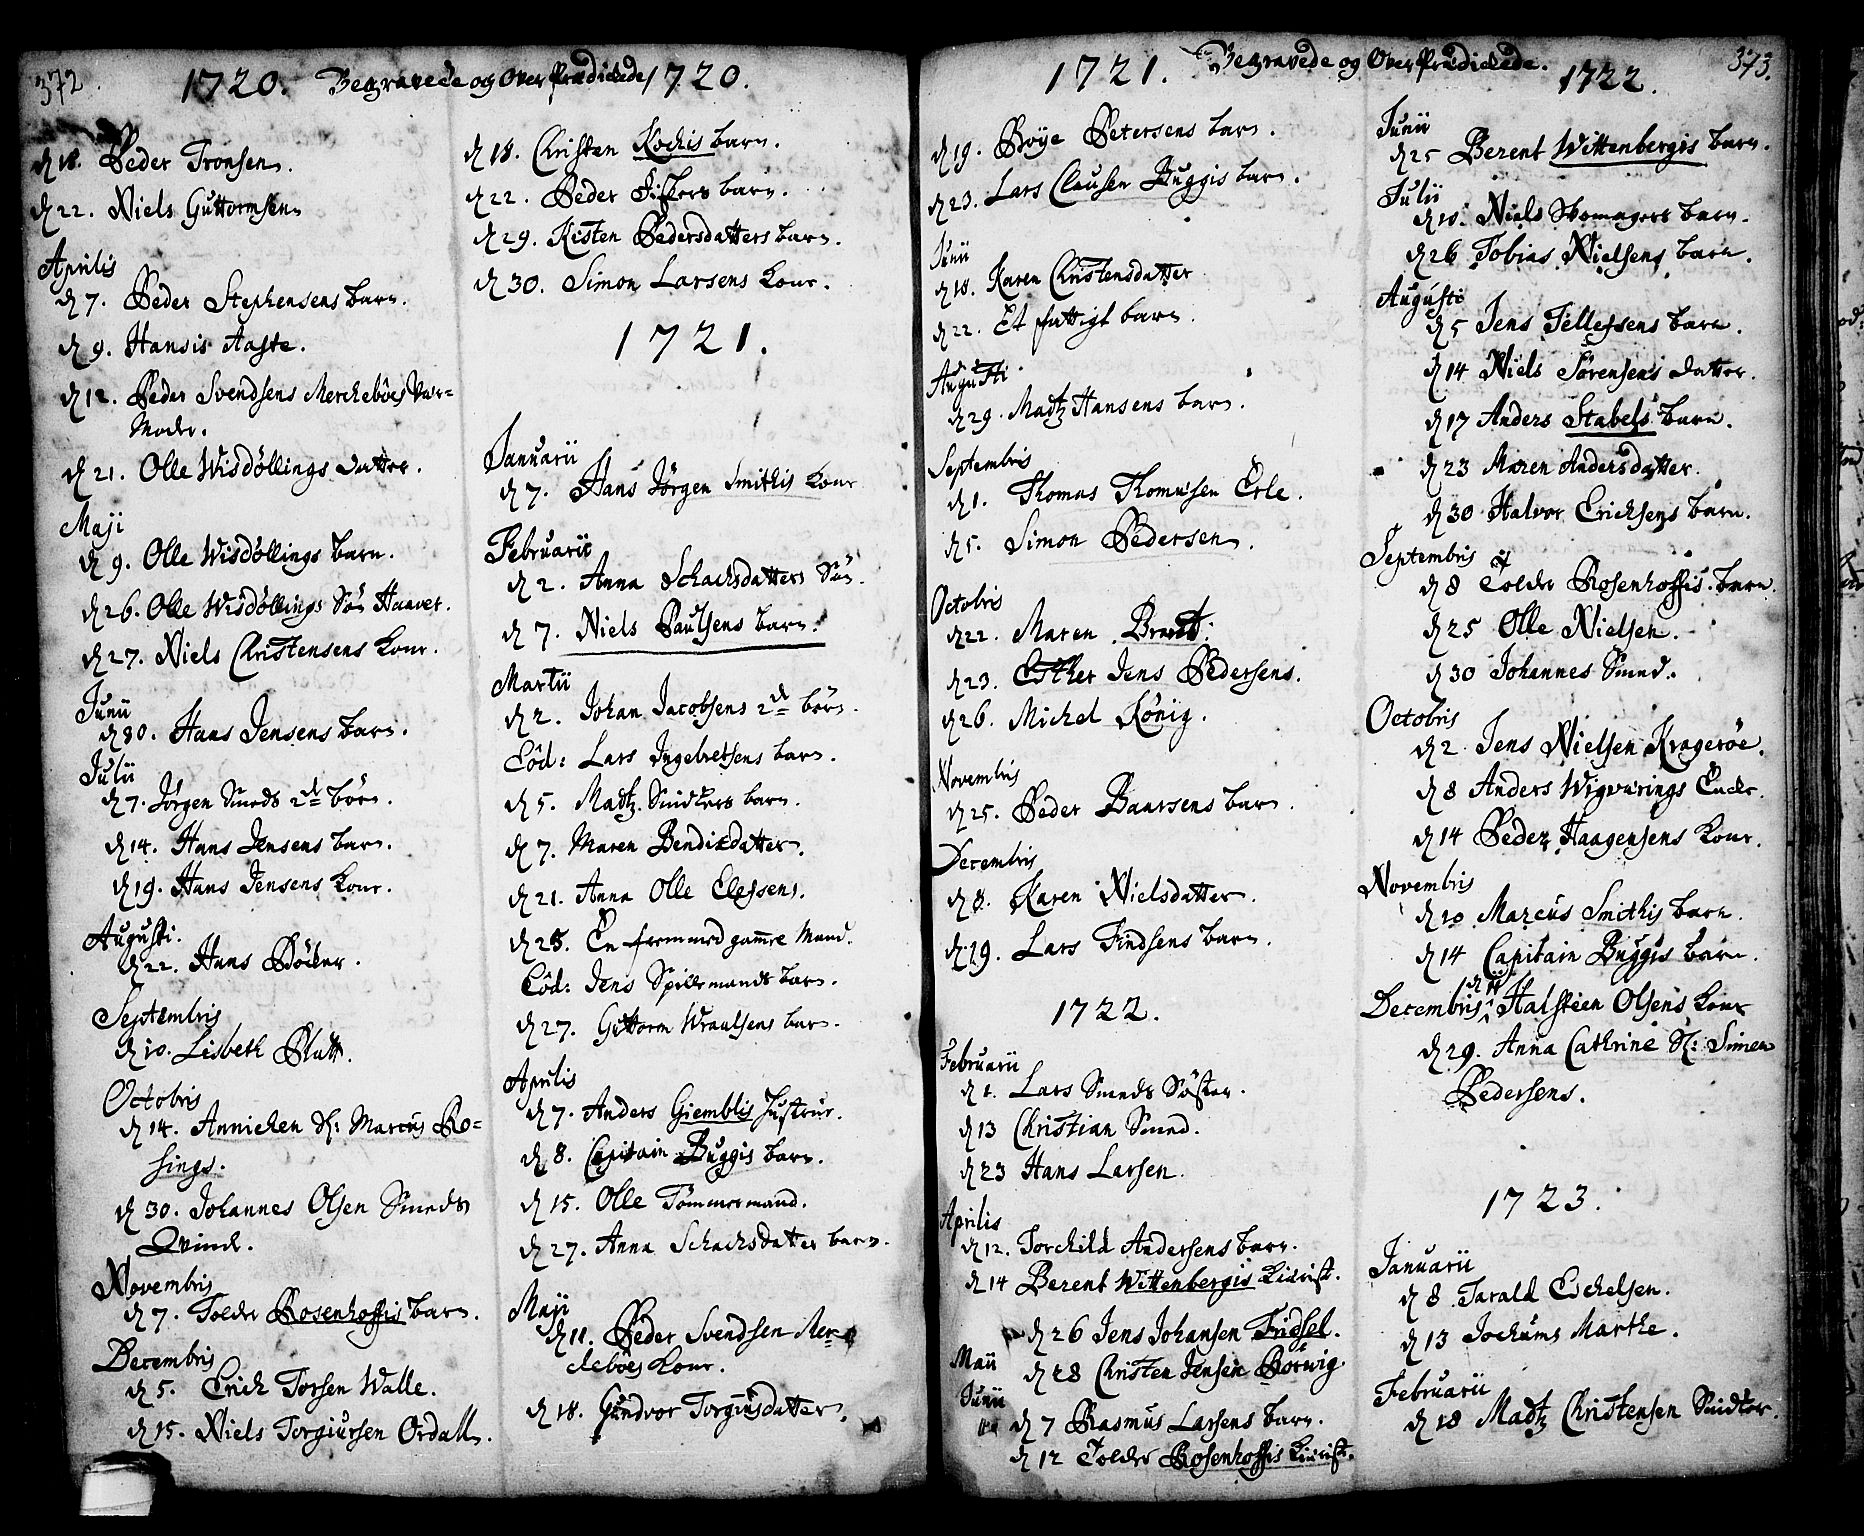 372.
1720. Begravede og Over Prædickede 1720.
d 18. Peder Tronsen.
d 22. Niels Guttormsen
Aprilis
d 7. Peder Stephensens barn.
d 9. Hansis Aaste.
d 12. Peder Svendsens Merckeböes Vær=
Moder.
d 21. Olle Wisdöllings datter.
Maji
d 9. Olle Wisdöllings barn.
d 26. Olle Wisdöllings Sön Haaver.
d 27. Niels Christensens Kone.
Junii
d 30. Hans Jensens barn.
Julii
d 7. Jörgen Smeds 2de börn.
d 14. Hans Jensens barn.
d 19. Hans Jensens Kone.
Augusti.
d 22. Hans Böcker.
Septembris
d 10. Lisbeth Platt.
Octobris
d 14. Annichen Sl: Marcus Ro=
sings.
d 30. Johannes Olsen Smeds
Qvinde.
Novembris
d 7. Tolder Rosenhoffis barn.
Decembris
d 5. Erich Torsen Walle.
d 15. Niels Torgiursen Ordall.
d 18. Christen Kochis barn.
d 22. Peder Fiskers barn.
d 29. Kisten Pedersdatters barn.
d 30. Simon Larsens Kone.
1721.
Januarii
d 7. Hans Jörgen Smithis Kone
Februarii
d 2. Anna Schachsdatters Sön.
d 7. Niels Paulsens barn.
Martii
d 2. Johan Jacobsens 2de börn.
Eôd: Lars Ingebretsens barn.
d 5. Madtz Snidkers barn.
d 7. Maren Bendixdatter.
d 21. Anna Olle Elefsens.
d 25. En fremmed gamle Mand.
Eôd: Jens Spillemands barn.
d 27. Guttorm Wraalsens barn.
Aprilis
d 7. Anders Giemblis Hustrue.
d 8. Capitain Buggis barn.
d 15. Olle Tömmermand.
d 27. Anna Schachsdatters barn.
Maji
d 11. Peder Svendsen Mer=
ckeböes Kone.
d 18. Gundvor Torgiusdatter.
1721. Begravede og Over Prædickede. 1722. 373.
d 19. Boÿe Petersens barn.
d 23. Lars Clausen Buggis barn.
Junii
d 18. Karen Christensdatter
d 22. Et fattigt barn.
Augusti
d 29. Madtz Hansens barn.
Septembris
d 1. Thomas Thomasen Erle.
d 5. Simon Pedersen.
Octobris
d 22. Maren Brandt.
d 23. Esther Jens Pedersens.
d 26. Michel König.
Novembris
d 25. Peder Baarsens barn.
Decembris
d 8. Karen Nielsdatter.
d 19. Lars Findsens barn.
1722.
Februarii
d 1. Lars Smeds Söster.
d 13 Christian Smed.
d 23 Hans Larsen.
Aprilis
d 12. Torchild Andersens barn.
d 14 Berent Wittenbergis
d 26 Jens Johansen Fridsel.
Maii
d 28 Christen Jensen Borwig
Junii
d 7 Rasmus Larsens barn.
d 12 Tolder Rosenhoffis
Junii
d 25 Berent Wittenbergis barn.
Julii
d 10. Niels Skomagers barn.
d 26 Tobias Nielsens barn.
Augusti
d 5 Jens Tellefsens barn.
d 14 Niels Sörensens datter.
d 17 Anders Stabels barn.
d 23 Maren Andersdatter.
d 30 Halvor Erichsens barn.
Septembris
d 8 Tolder Rosenhoffis barn.
d 25 Olle Nielsen.
d 30 Johannes Smed.
Octobris
d 2 Jens Nielsen Krageröe.
d 8 Anders Wigvarings Encke.
d 14 Peder Haagensens Kone.
Novembris
d 10 Marcus Smithis barn.
d 14 Capitain Buggis barn.
Decembris d 11 Halsteen Olsens Kone
d 29. Anna Cathrine Sl: Simen
Pedersens.
1723.
Januarii
d 8 Tarald Eschelsen.
d 13 Jochums Marthe.
Februarii
d 18 Madtz Christensen Snidker.